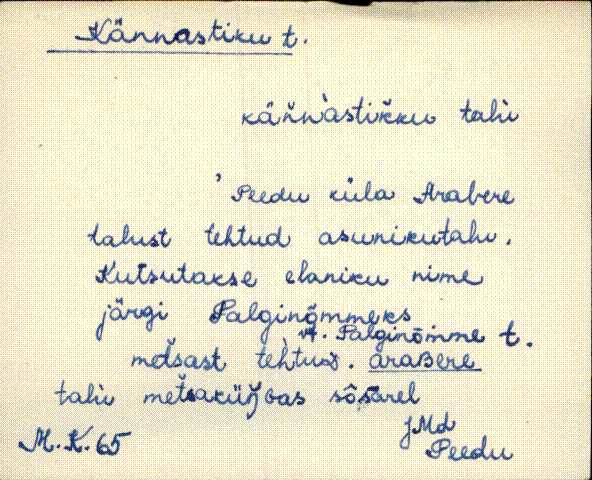 Kännastiku t.
kän̆n`astik̆ku talu
' Peedu küla Arabere
talust tehtud asunikutalu.
Kutsutakse elaniku nime
järgi Palginõmmeks
vt. Palginõmme t.
met̆sast teh̆tud. araBere
talu
M.K. 65
JMd
Peedu